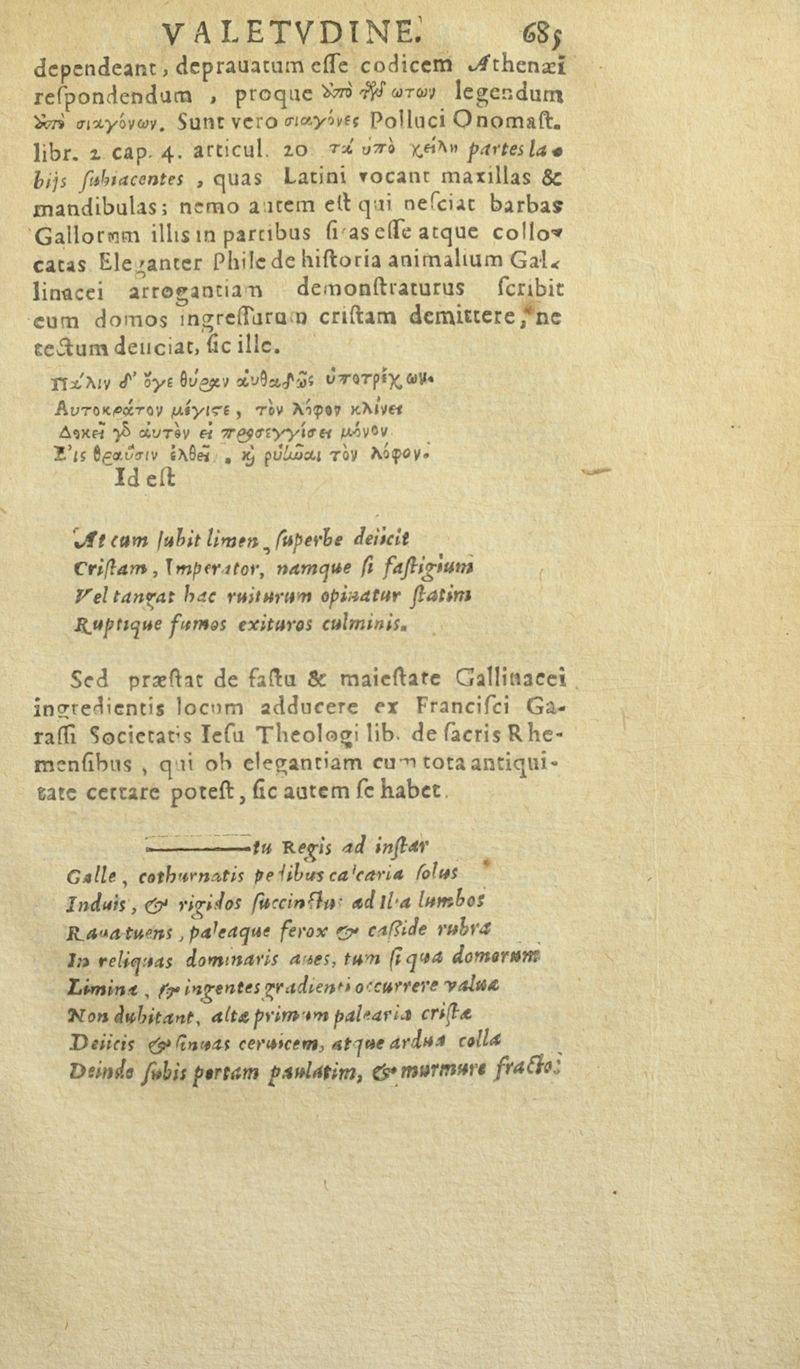 VALETVDINE. 685
dependeant, deprauatum eſſe codicem Athenæi
reſpondendum , proque ἀπὸ τῶν ὠτων legendum
ἀπὸ σιαγόνων. Sunt vero σιαγόνες Polluci Onomaſt.
libr. 2 cap. 4. articul. 20 τὰ ὑπὸ χείλη partes la-
bijs ſubiacentes , quas Latini vocant maxillas &
mandibulas; nemo autem eſt qui neſciat barbas
Gallorum illis in partibus ſitas eſſe atque collo-
catas Eleganter Phile de hiſtoria animalium Gal-
linacei arrogantiam demonſtraturus ſcribit
eum domos ingreſſurum criſtam demittere, ne
tectum deiiciat, ſic ille.
Πάλιν δ' ὅγε θύραν αὐθαδῶς ὑποτρίχων
Αυτοκράτον μέγιστε , τὸν λόφον κλίνει
Δοκεῖ γὸ αὐτὸν εἰ προσεγγίσει μόνον
Ἐις θραῦσιν ἐλθεῖ , καὶ ῥύμναι τὸν λόφον.
Id eſt
At cum ſubit limen, ſuperbe deiicit
Criſtam, Imperator, namque ſi faſtigium
Vel tangat hac ruiturum opinatur ſtatim
Ruptique fumos exituros culminis.
Sed præſtat de faſtu & maieſtate Gallinacei
ingredientis locum adducere ex Franciſci Ga-
raſſi Societatis Ieſu Theologi lib. de ſacris Rhe-
menſibus , qui ob elegantiam cum tota antiqui-
tate certare poteſt, ſic autem ſe habet.
—— tu Regis ad inſtar
Galle, cothurnatis pedibus calcaria ſolus
Induis, & rigidos ſuccinctus ad Ilia lumbos
Raua tuens, paleaque ferox & caßide rubra
In reliquas dominaris aues, tum ſi qua domorum
Limina , & ingentes gradienti occurrere valuæ
Non dubitant, alta primum palearia criſta
Deiicis & ſinuas ceruicem, atque ardua colla
Deinde ſubis portam paulatim, & murmure fracto: